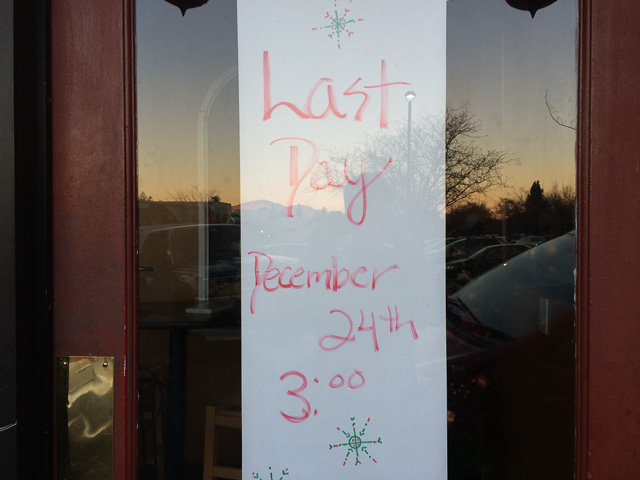 Last
Day
December
24th
3:00